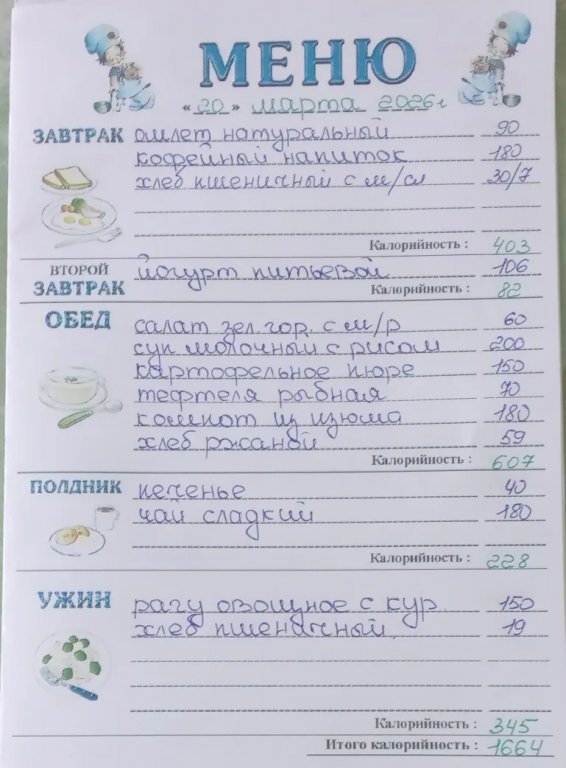 МЕНЮ
«20» марта 2026г
ЗАВТРАК омлет натуральный 90
кофейный напиток 180
хлеб пшеничный с м/сл 30/7
Калорийность : 403
ВТОРОЙ ЗАВТРАК йогурт питьевой 106
Калорийность : 82
ОБЕД салат зел. гор. с м/р 60
суп молочный с рисом 200
картофельное пюре 150
тефтеля рыбная 70
компот из изюма 180
хлеб ржаной 59
Калорийность : 607
ПОЛДНИК печенье 40
чай сладкий 180
Калорийность : 228
УЖИН рагу овощное с кур. 150
хлеб пшеничный 19
Калорийность : 345
Итого калорийность : 1664